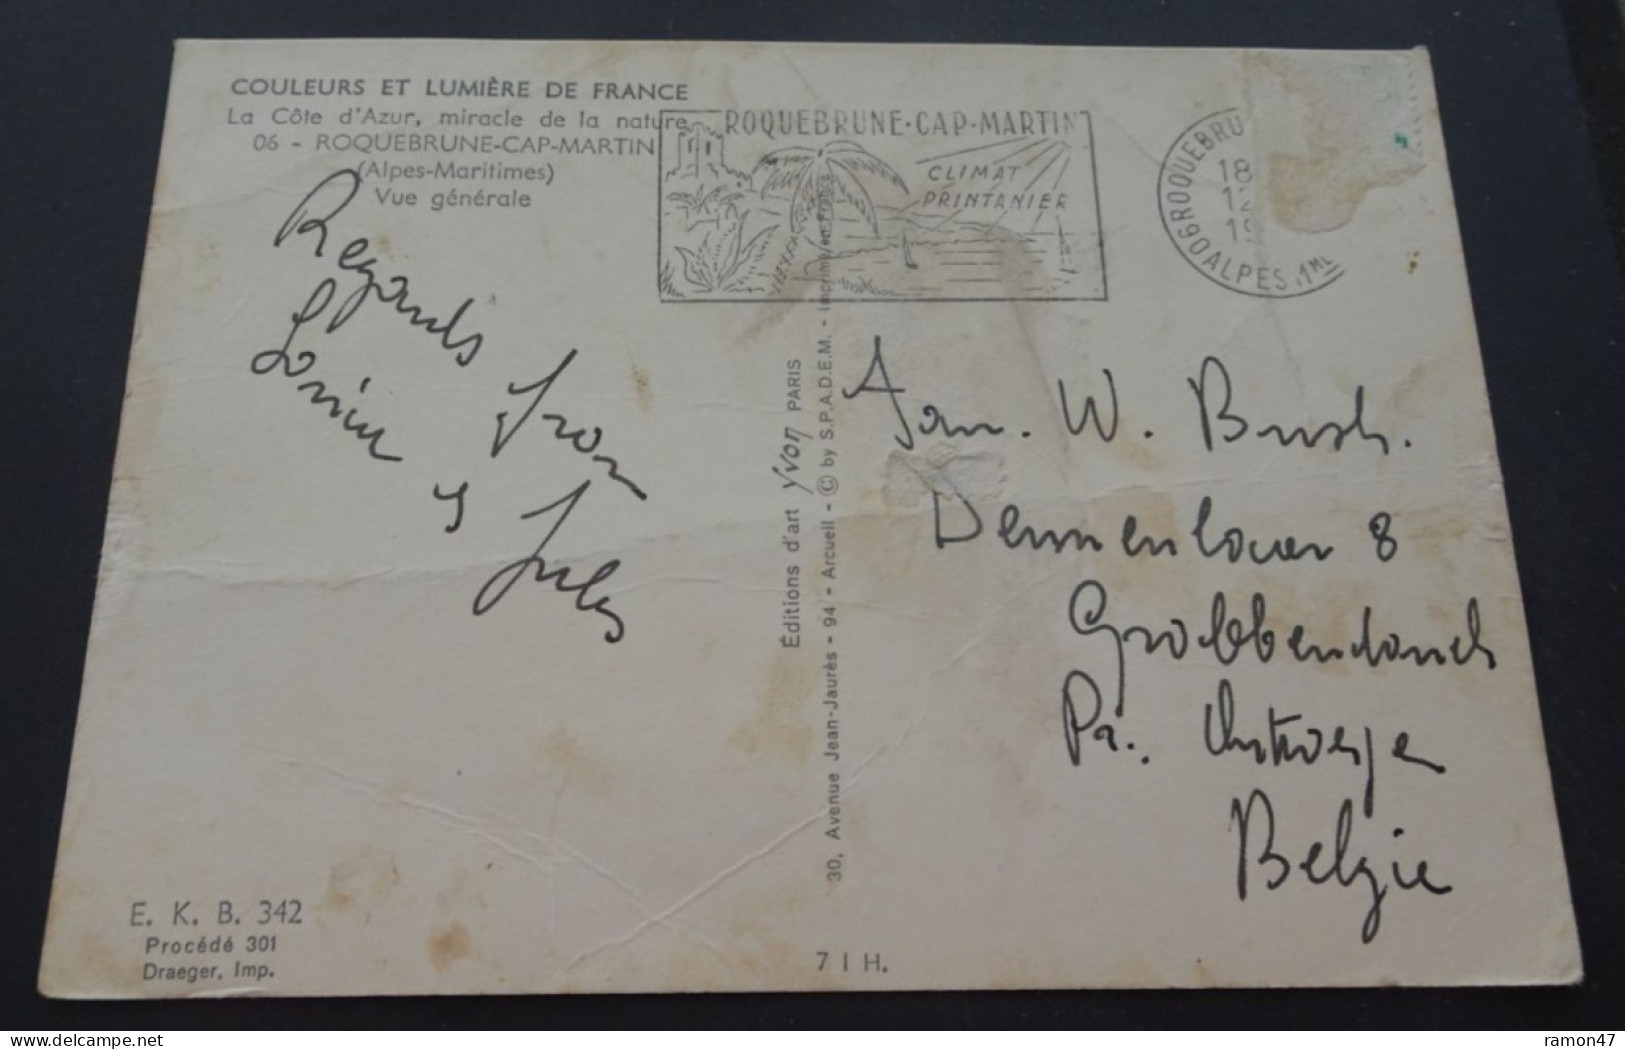 COULEURS ET LUMIÈRE DE FRANCE
La Côte d'Azur, miracle de la nature
06 - ROQUEBRUNE-CAP-MARTIN
(Alpes-Maritimes)
Vue générale
ROQUEBRUNE-CAP-MARTIN
CLIMAT
PRINTANIER
06 ROQUEBRU
ALPES MME
18
12
19
Regards from
y Jules
Éditions d'art Yvon PARIS
30, Avenue Jean-Jaurès - 94 - Arcueil - © by S.P.A.D.E.M. - imprimé en France
Jan. W. Bush.
8
Grobbendonck
Pr. Antwerpen
Belgie
E. K. B. 342
Procédé 301
Draeger, Imp.
7 I H.
ramon47